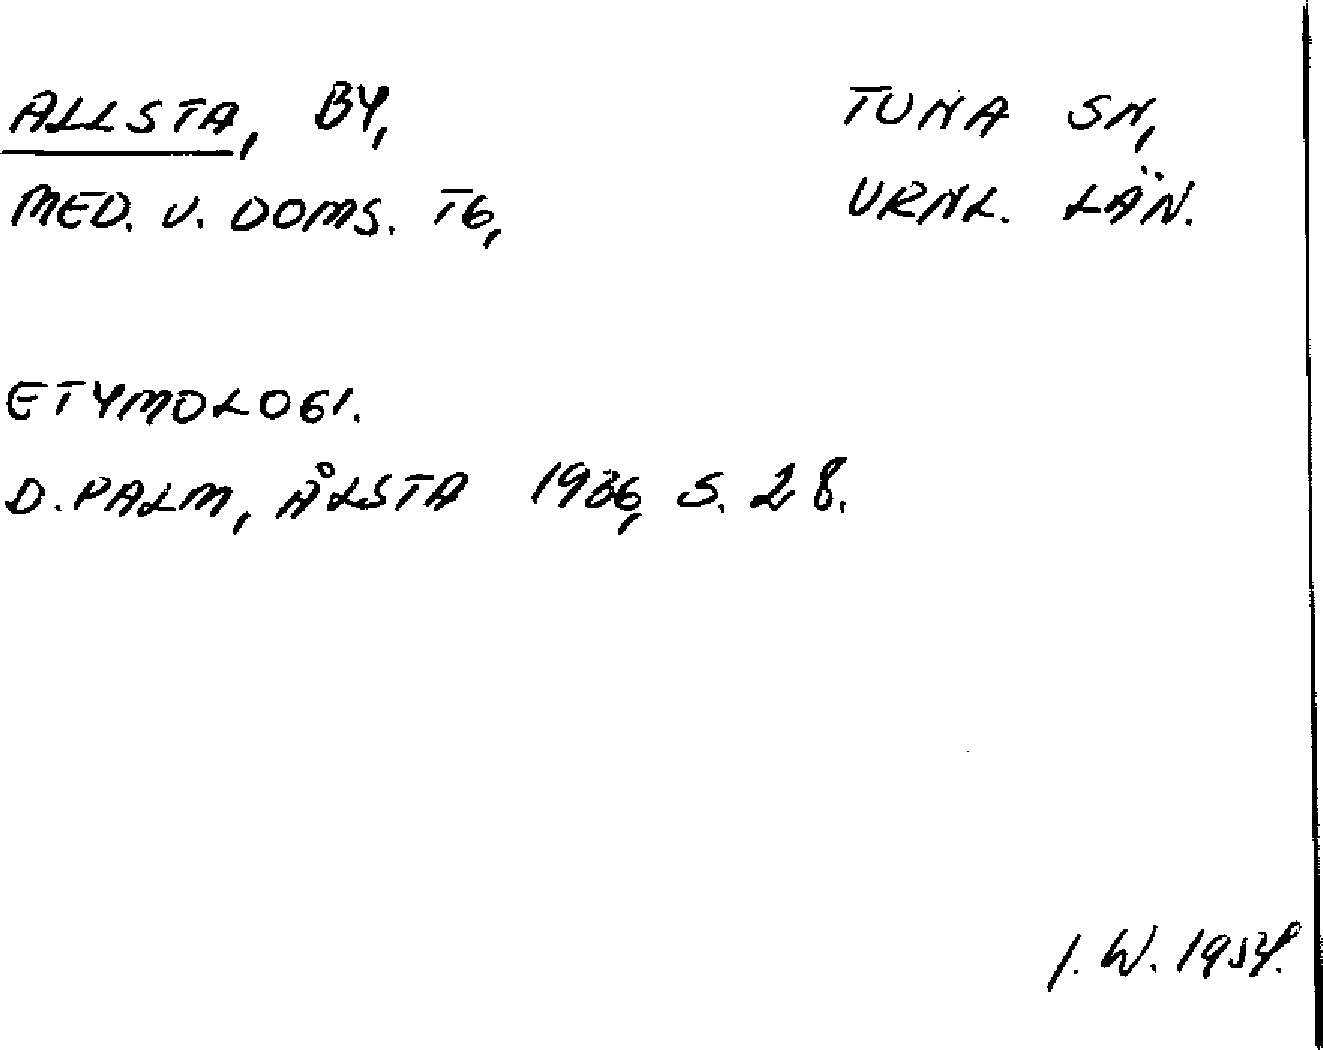 ALLSTA, BY, TUNA SN,
MED. V. DOMS. TG, VRNL. LÄN.
ETYMOLOGI.
D. PALM, ÅLSTA 1936, S. 28.
I. W.